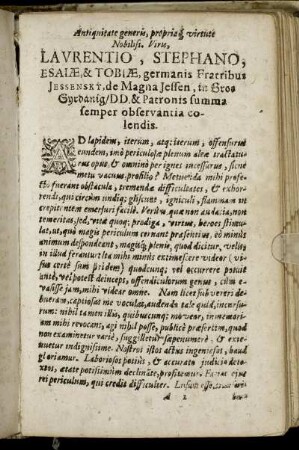 Antiquitate generis, propriaq; virtute
Nobiliss. Viris,
LAVRENTIO, STEPHANO,
ESAIÆ, & TOBIÆ, germanis Fratribus
JESSENSKY, de Magna Jessen, in Gros
Gyedanig/DD. & Patronis summa
semper observantia co-
lendis.
AD lapidem, iterum, atq; iterum, offensurus
eundem, imò periculosæ plenum aleæ tractatu-
rus opus, & omninò per ignes incessurus, sicne
metu vacuus prosilio? Metuenda mihi profe-
ctò fuerant obstacula, tremendæ difficultates, & exhor-
rendi, qui circùm undiq; gliscunt, igniculi, flammam in-
crepitantem emersuri facilè. Verùm quæ non audacia, non
temeritas, sed, vitæ quoq; prodiga, virtus, heroes stimu-
lat, ut, quò magis periculum cernunt præsentius, eò minùs
animum despondeant, magisq; plenis, quod dicitur, velis,
in illud ferantur: Ita mihi nimis extimescere videor (vi-
sus certè sum pridem) quodcunq; vel occurrere potuit
uspiam, vel potest deinceps, offendiculorum genus, cùm e-
vasisse jam, mihi videar omne. Nam licet subvereri de-
buerim, captiosas me voculas, audendo tale quid, incursu-
rum: nihil tamen illis, quibuscunq; moveor, in memoriam
mihi revocans, agi nihil posse, publicè præsertim, quod
non examinetur variè, suggilletur sæpenumerò, & exte-
nuetur indignissimè. Nostri istos actus ingeniosos, haud
gloriamur. Laboriosos potiùs, & accurato judicio deto-
nsos, ætate potissimùm declinante, profitemur.
rei periculum, qui credis difficulter.
A 2